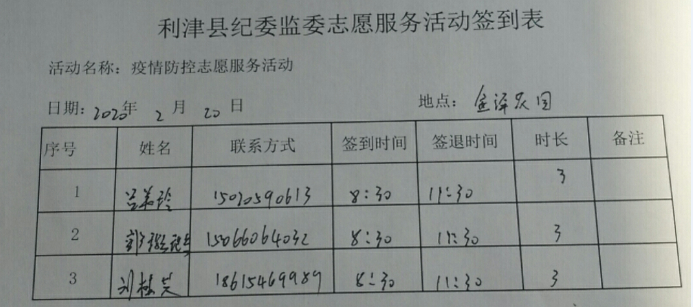 利津县纪委监委志愿服务活动签到表
活动名称：疫情防控志愿服务活动
日期：2020年 2 月 20 日 地点：金泽家园
序号 姓名 联系方式 签到时间 签退时间 时长 备注
1 15020590613 8:30 11:30 3
2 15066064032 8:30 11:30 3
3 18615469989 8:30 11:30 3